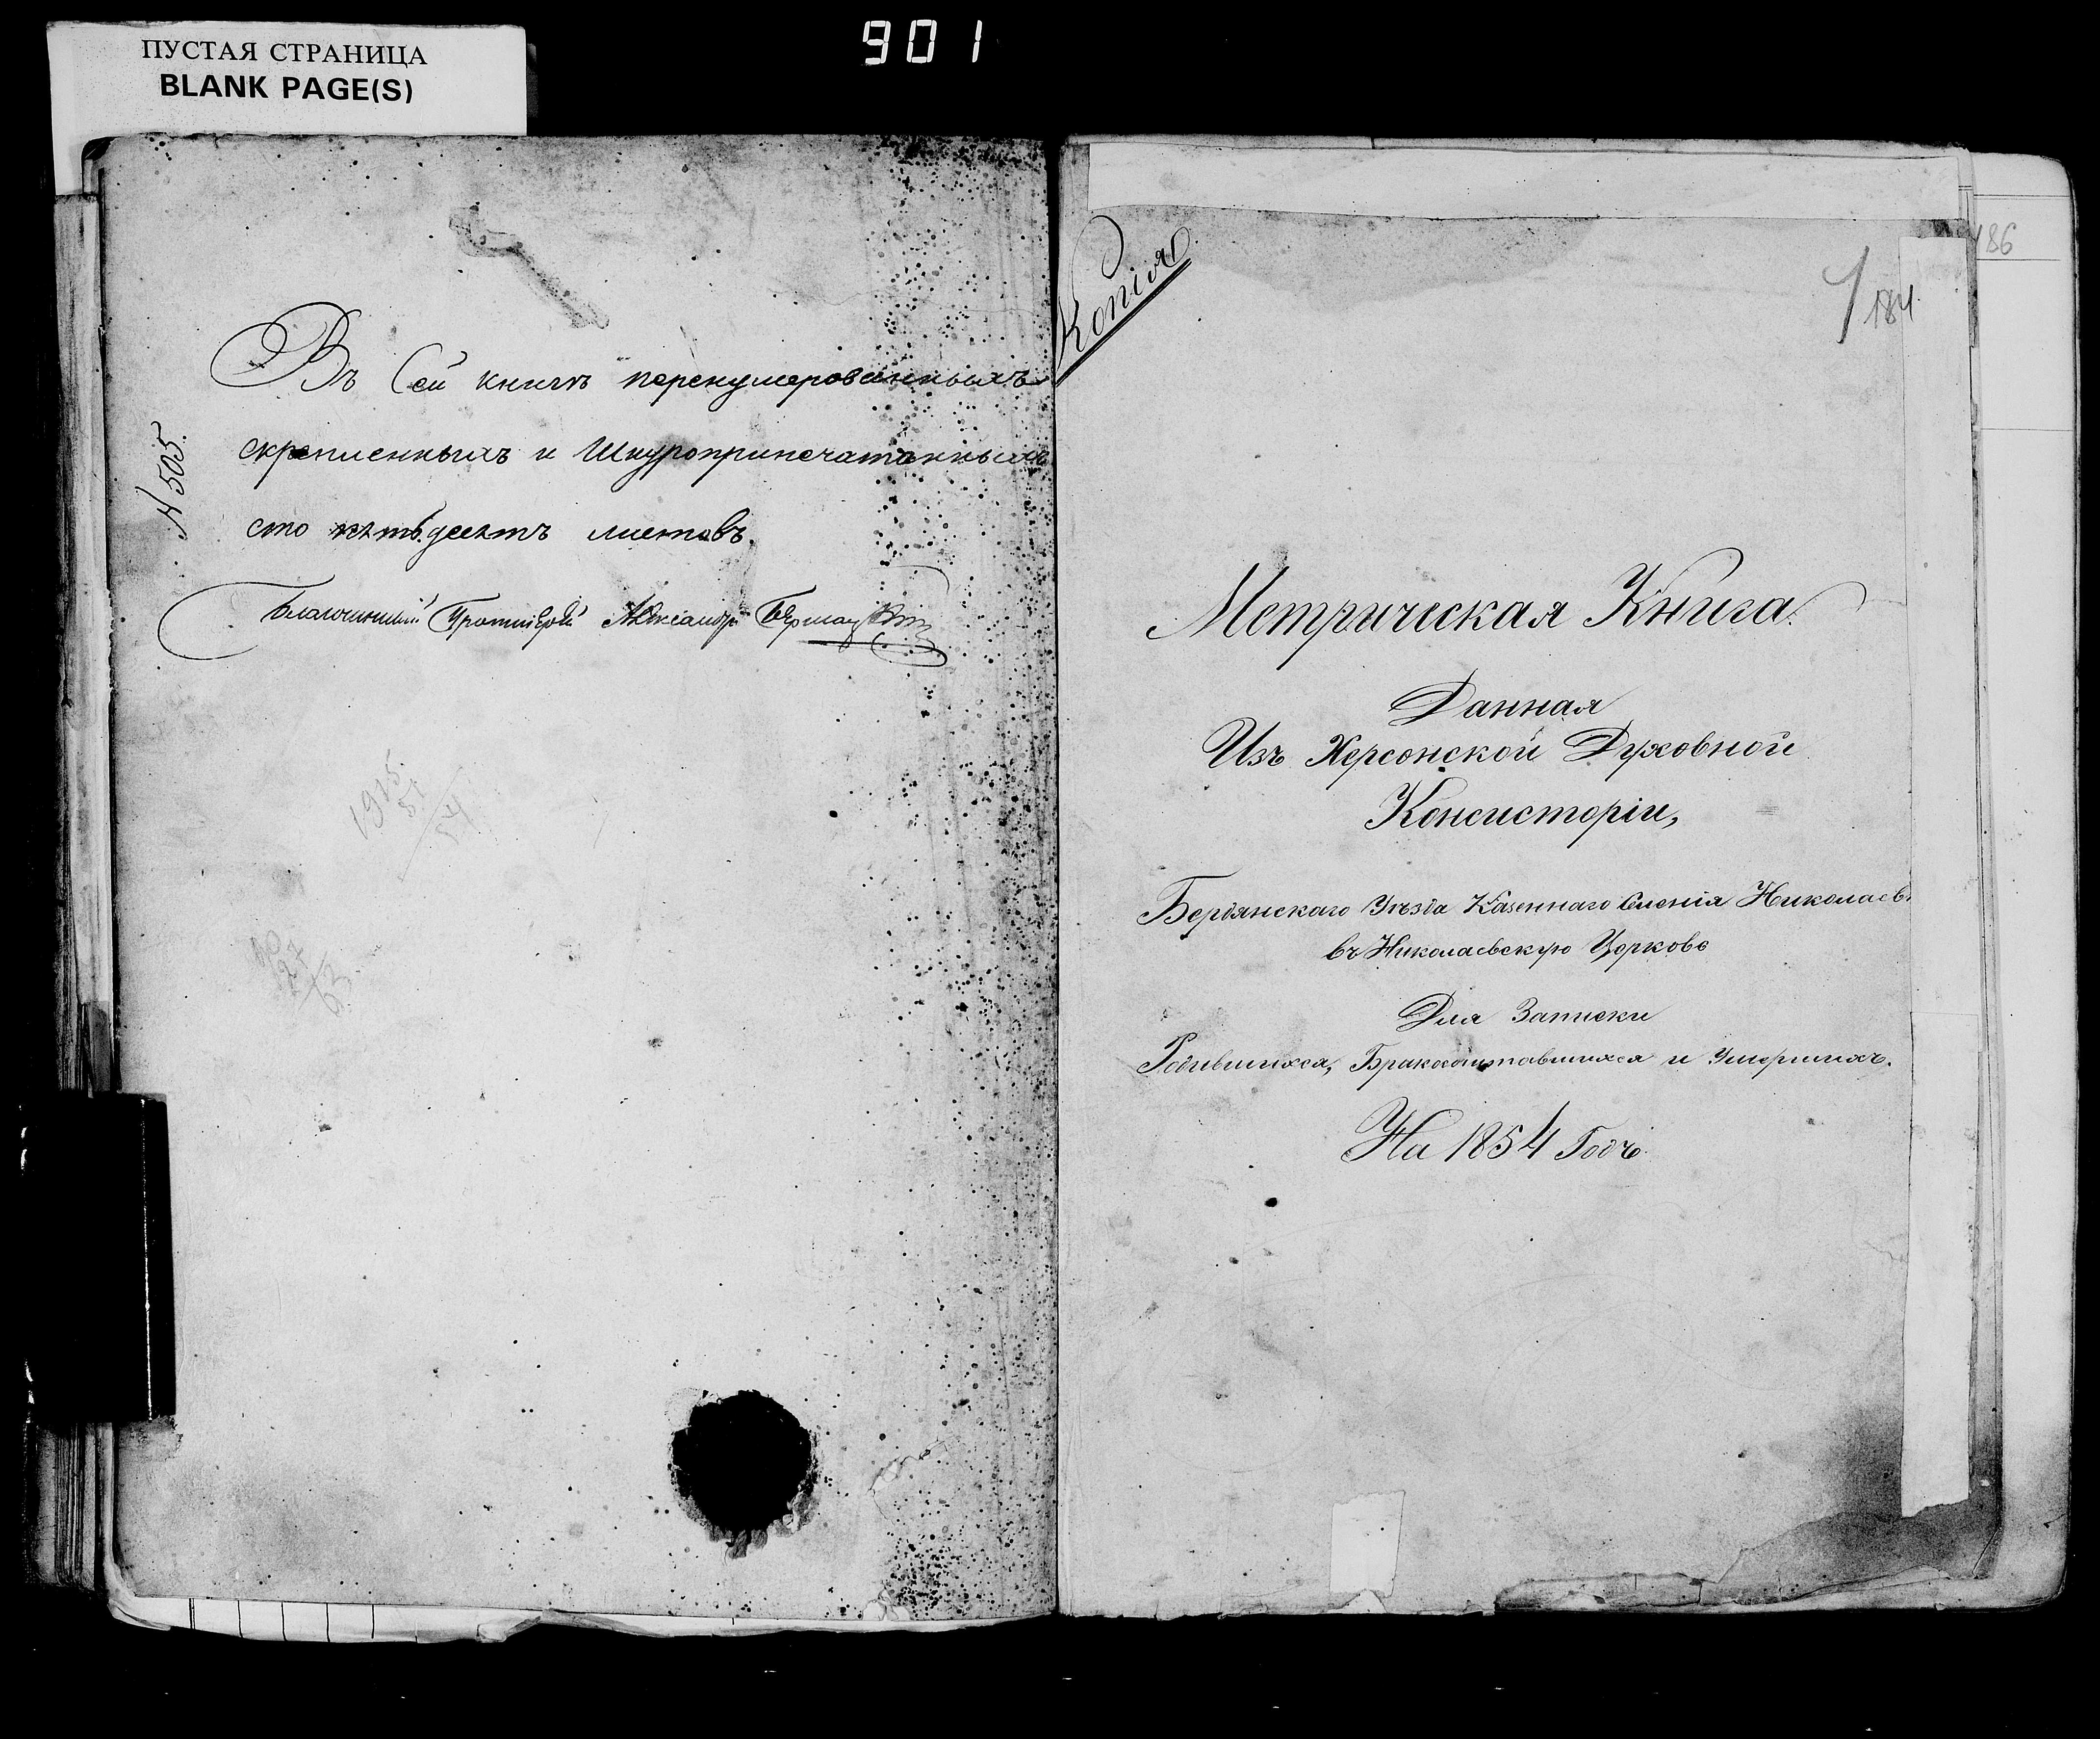 901
ПУСТАЯ СТРАНИЦА
BLANK PAGE(S)
Въ Сей книгѣ перенумерованныхъ
скрепленныхъ и Шнуроприпечатанныхъ
сто пятьдесятъ листовъ.
Благочинный Протоіерей Александръ
№ 505.
1915
51
54
27
63
Копія
184
186
Метрическая Книга.
Данная
Изъ Херсонской Духовной
Консисторіи,
Бердянскаго Уѣзда Казеннаго Селенія Николаев
въ Николаевскую Церковь
Для Записки
Родившихся, Бракосочитавшихся и Умершихъ.
На 1854 Годъ